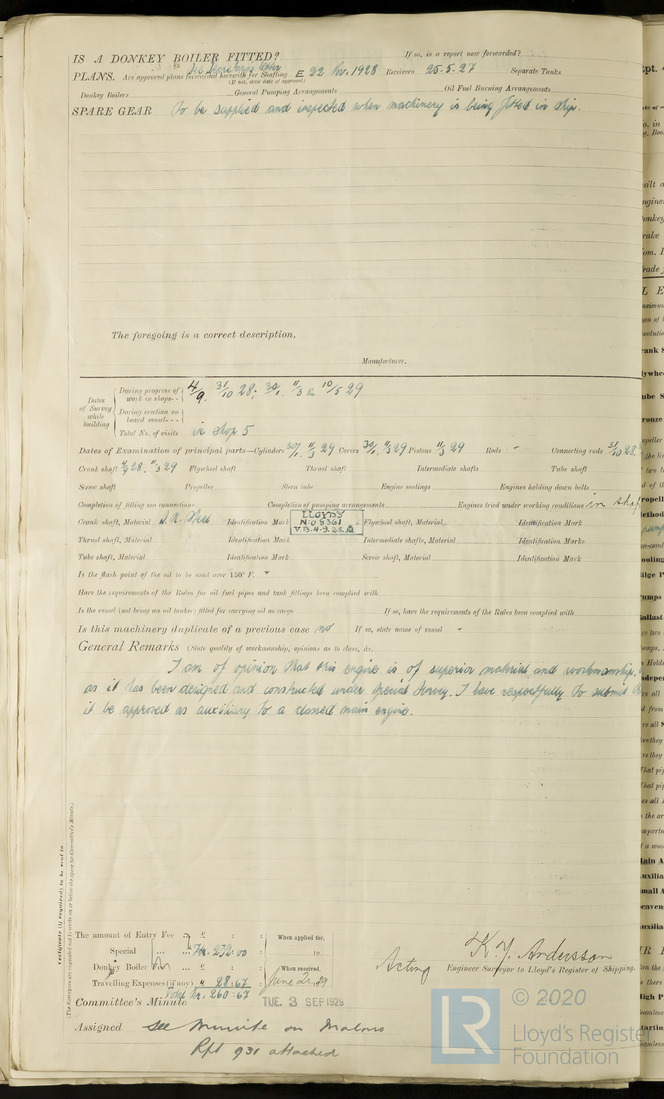 IS A DONKEY BOILER FITTED? If so, is a report now forwarded?
PLANS. Are approved plans forwarded herewith for Shafting E 22 Nov. 1928 Receivers 25.5.27 Separate Tanks
(If not, state date of approval)
Donkey Boilers General Pumping Arrangements Oil Fuel Burning Arrangements
SPARE GEAR To be supplied and inspected when machinery is being fitted in ship.
The foregoing is a correct description,
Manufacturer.
Dates of Survey while building
During progress of work in shops - - 4/9, 31/10 28; 30/1, 11/3 & 10/5 29
During erection on board vessel - - -
Total No. of visits in shop 5
Dates of Examination of principal parts—Cylinders 30/1, 11/3 29 Covers 30/1, 11/3 29 Pistons 11/3 29 Rods - Connecting rods 31/10 28,
Crank shaft 4/9 28, 11/3 29 Flywheel shaft Thrust shaft Intermediate shafts Tube shaft
Screw shaft Propeller Stern tube Engine seatings Engines holding down bolts
Completion of fitting sea connections Completion of pumping arrangements Engines tried under working conditions in shop
Crank shaft, Material S.M. Steel Identification Mark LLOYD'S No 8361 V.B. 4.9.28 Flywheel shaft, Material Identification Mark
Thrust shaft, Material Identification Mark Intermediate shafts, Material Identification Marks
Tube shaft, Material Identification Mark Screw shaft, Material Identification Mark
Is the flash point of the oil to be used over 150° F. "
Have the requirements of the Rules for oil fuel pipes and tank fittings been complied with
Is the vessel (not being an oil tanker) fitted for carrying oil as cargo If so, have the requirements of the Rules been complied with
Is this machinery duplicate of a previous case no If so, state name of vessel -
General Remarks (State quality of workmanship, opinions as to class, &c.
I am of opinion that this engine is of superior material and workmanship,
as it has been designed and constructed under special survey. I have respectfully to submit
it be approved as auxiliary to a classed main engine.
The amount of Entry Fee .. " : When applied for,
Special ... ... Kr. 232.00 19
Donkey Boiler When received,
Travelling Expenses (if any) " 28.67
Total Kr. 260.67
Acting K. J. Andersson
Engineer Surveyor to Lloyd's Register of Shipping.
Committee's Minute TUE. 3 SEP 1929
Assigned See Minute on
Rpt 931 attached
© 2020
LR
Lloyd's Register
Foundation